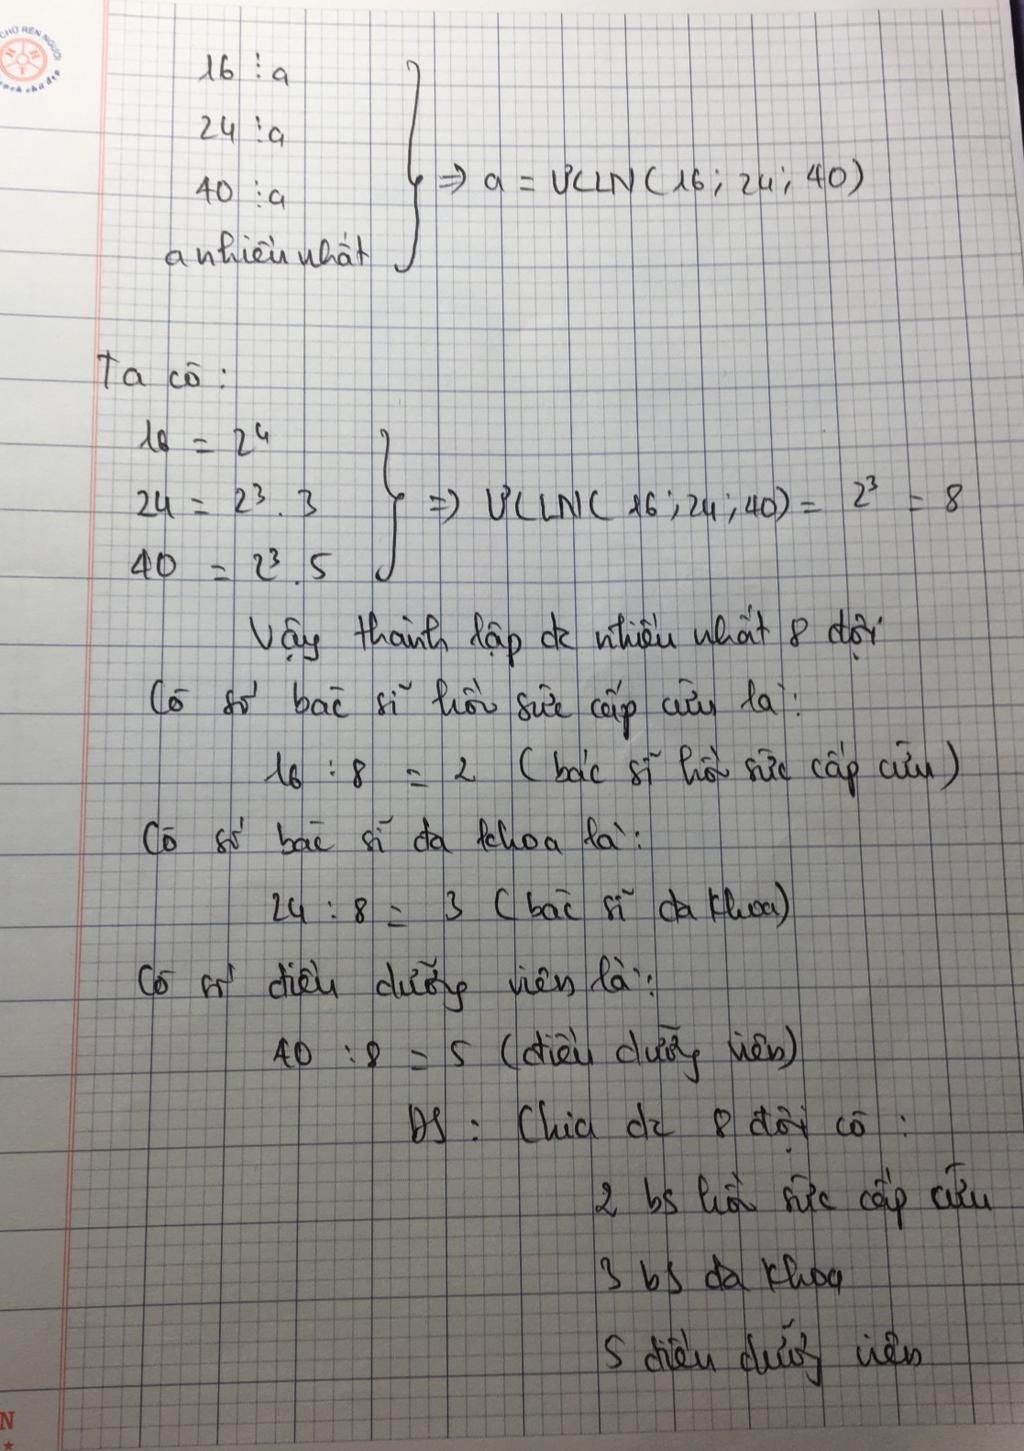 CHỮ RÈN NGƯỜI
16 ⋮ a
24 ⋮ a
40 ⋮ a
a nhiều nhất
⇒ a = ƯCLN( 16 ; 24 ; 40 )
Ta có :
16 = 2⁴
24 = 2³ . 3
40 = 2³ . 5
⇒ ƯCLN( 16 ; 24 ; 40 ) = 2³ = 8
Vậy thành lập đc nhiều nhất 8 đội
Có số bác sĩ hồi sức cấp cứu là :
16 : 8 = 2 ( bác sĩ hồi sức cấp cứu )
Có số bác sĩ đa khoa là :
24 : 8 = 3 ( bác sĩ đa khoa )
Có số điều dưỡng viên là :
40 : 8 = 5 ( điều dưỡng viên )
ĐS : Chia đc 8 đội có :
2 bs hồi sức cấp cứu
3 bs đa khoa
5 điều dưỡng viên
N